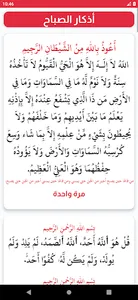 10:46
أذكار الصباح
أَعُوذُ بِاللهِ مِنْ الشَّيْطَانِ الرَّجِيمِ
اللهُ لاَ إِلَهَ إِلاَّ هُوَ الْحَيُّ الْقَيُّومُ لاَ تَأْخُذُهُ
سِنَةٌ وَلاَ نَوْمٌ لَّهُ مَا فِي السَّمَاوَاتِ وَمَا فِي
الأَرْضِ مَن ذَا الَّذِي يَشْفَعُ عِنْدَهُ إِلاَّ بِإِذْنِهِ
يَعْلَمُ مَا بَيْنَ أَيْدِيهِمْ وَمَا خَلْفَهُمْ وَلاَ
يُحِيطُونَ بِشَيْءٍ مِّنْ عِلْمِهِ إِلاَّ بِمَا شَاء وَسِعَ
كُرْسِيُّهُ السَّمَاوَاتِ وَالأَرْضَ وَلاَ يَؤُودُهُ
حِفْظُهُمَا وَهُوَ الْعَلِيُّ الْعَظِيمُ
مرة واحدة
بِسْمِ اللهِ الرَّحْمنِ الرَّحِيم
قُلْ هُوَ ٱللَّهُ أَحَدٌ، ٱللَّهُ ٱلصَّمَدُ، لَمْ يَلِدْ
وَلَمْ يُولَدْ، وَلَمْ يَكُن لَّهُۥ كُفُوًا أَحَدٌۢ.
بِسْمِ اللهِ الرَّحْمنِ الرَّحِيم